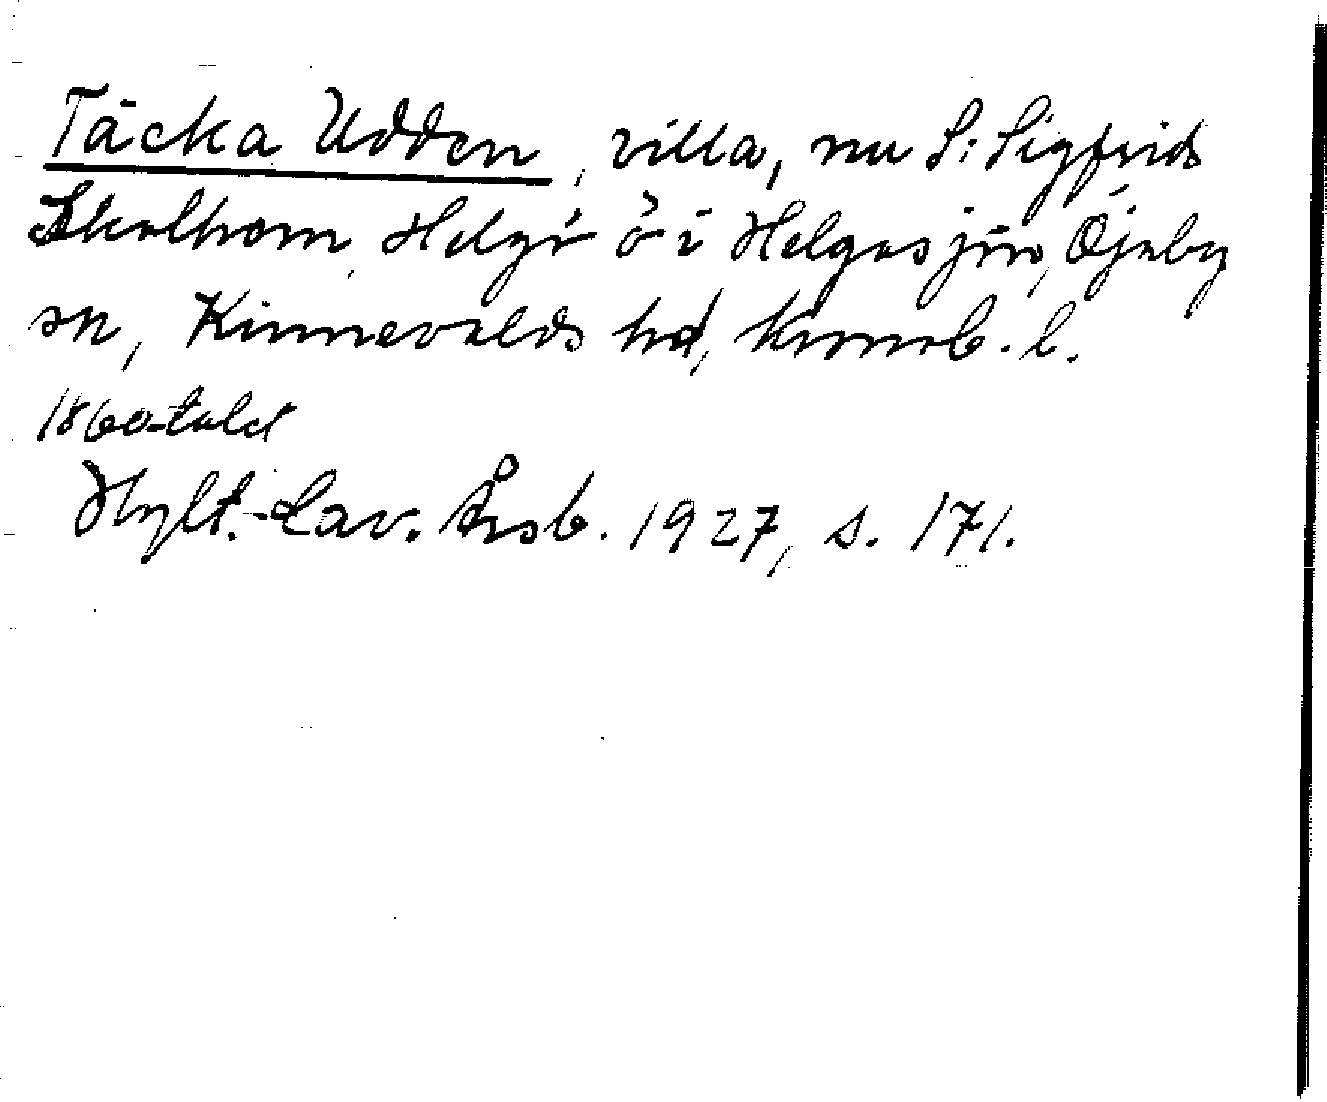 Täcka Udden, villa, nu S:Sigfrids
Skolhem, Helgö ö i Helgasjön, Öjaby
sn, Kinnevalds hd, Kronob. l.
1860-talet
Hylt.-Cav. Årsb. 1927, s. 171.